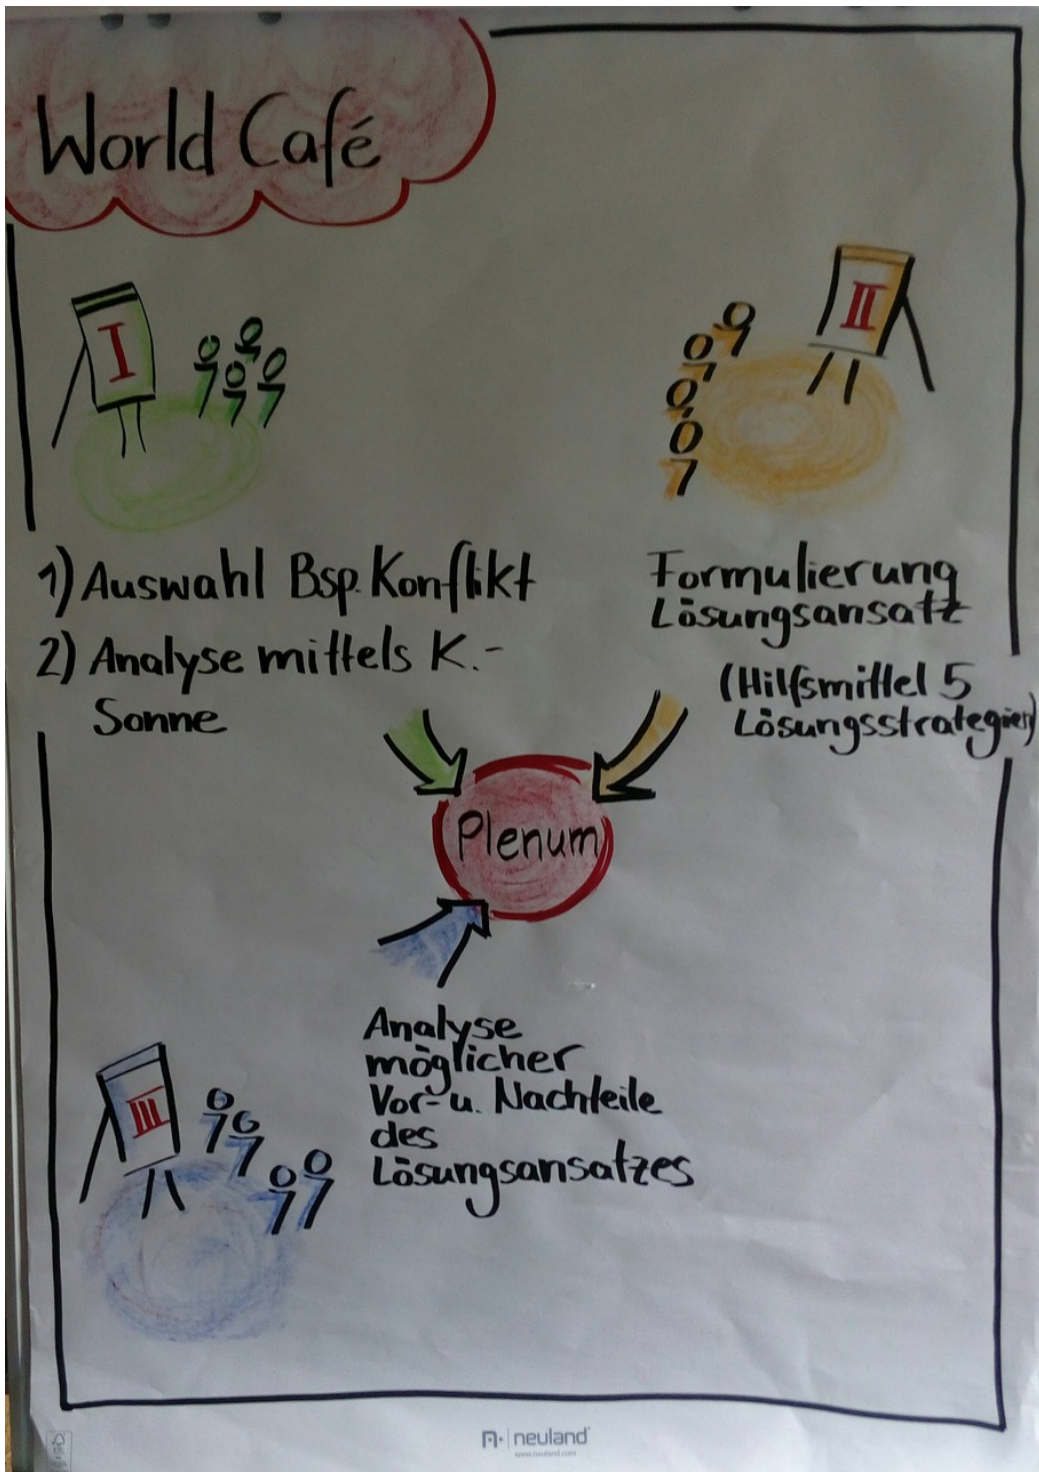 World Café
I
II
1) Auswahl Bsp. Konflikt
2) Analyse mittels K.-
Sonne
Formulierung
Lösungsansatz
(Hilfsmittel 5
Lösungsstrategien)
Plenum
III
Analyse
möglicher
Vor- u. Nachteile
des
Lösungsansatzes
neuland
www.neuland.com